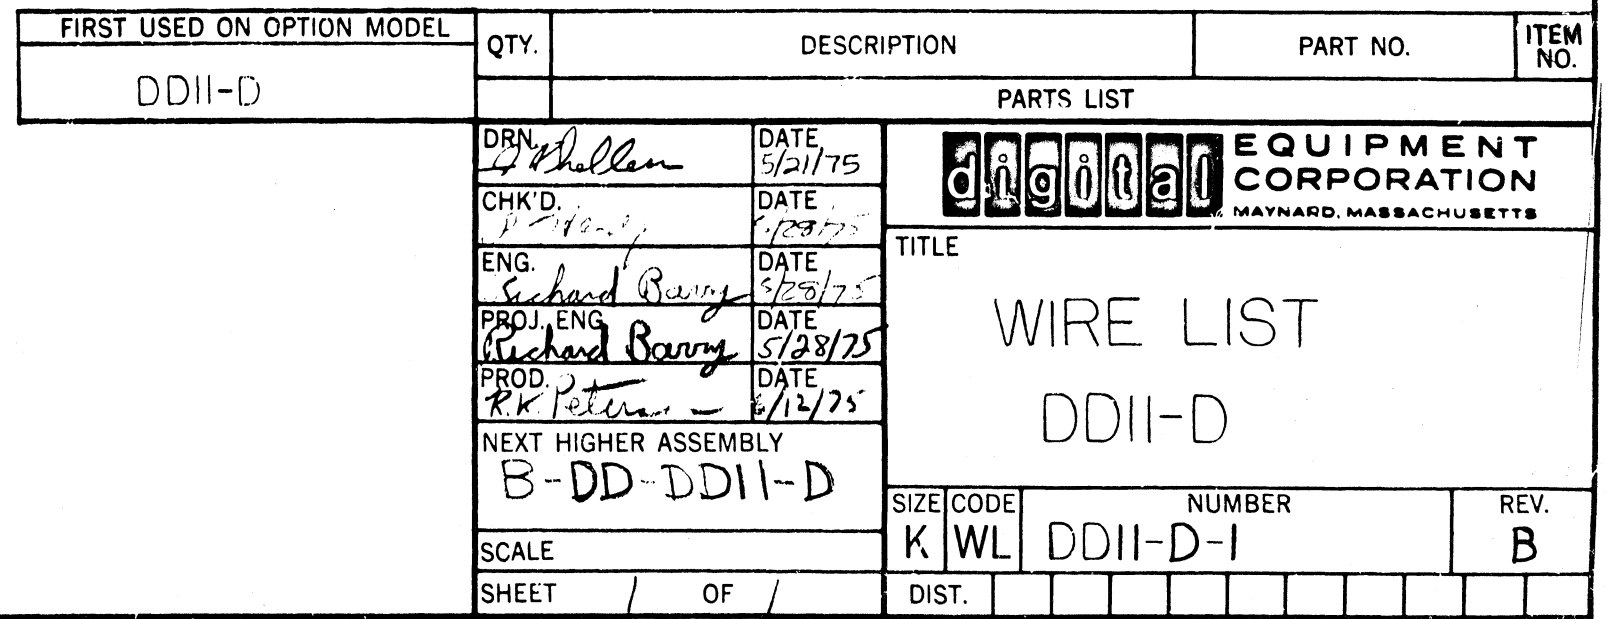 FIRST USED ON OPTION MODEL
DD11-D
QTY.
DESCRIPTION
PART NO.
ITEM
NO.
PARTS LIST
DRN.
DATE
5/21/75
CHK'D.
DATE
5/28/75
ENG.
Richard Barry
DATE
5/28/75
PROJ. ENG
Richard Barry
DATE
5/28/75
PROD.
R.K. Peterson
DATE
6/12/75
NEXT HIGHER ASSEMBLY
B-DD-DD11-D
SCALE
SHEET 1 OF 1
digital
EQUIPMENT
CORPORATION
MAYNARD, MASSACHUSETTS
TITLE
WIRE LIST
DD11-D
SIZE CODE NUMBER REV.
K WL DD11-D-1 B
DIST.